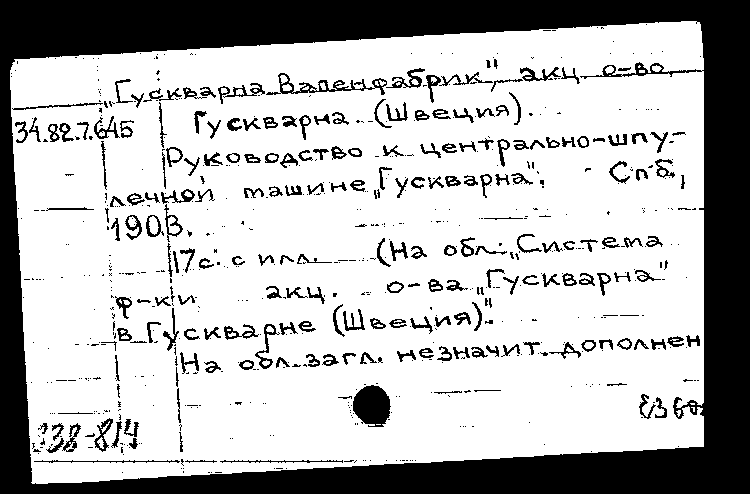 „Гускварна Вапенфабрик", акц. о-во,
34.82.7.645 Гускварна (Швеция).
Руководство к центрально-шпу-
лечной машине „Гускварна". Спб.,
1903.
17с. с илл. (На обл.: „Система
ф-ки акц. о-ва „Гускварна"
в Гускварне (Швеция)".
На обл. загл. незначит. дополнен
338-814